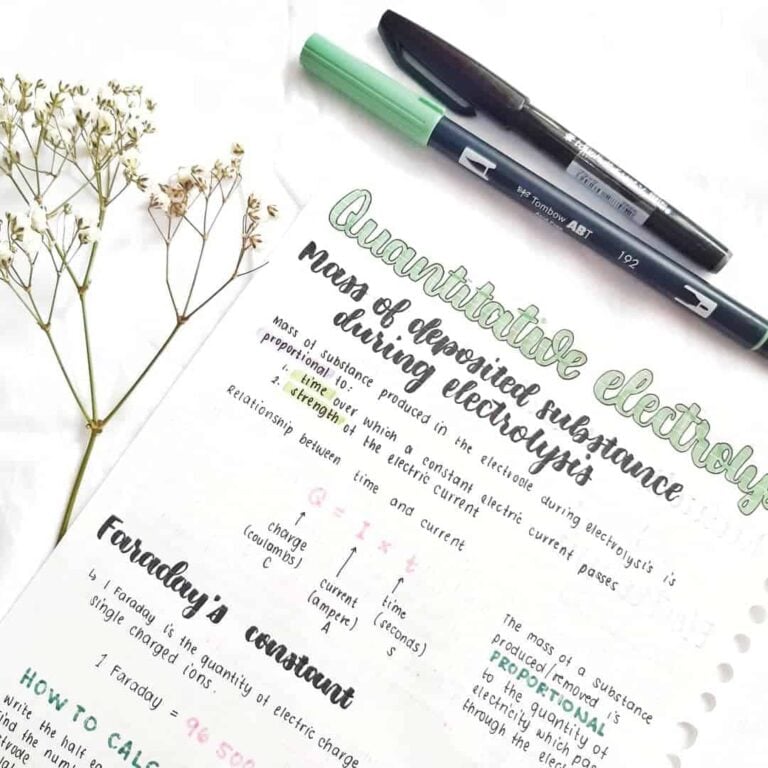 Tombow ABT
192
Quantitative
Mass of deposited substance
during electrolysis
Mass of substance produced in the electrode during electrolysis is
proportional to:
1. time over which a constant electric current passes
2. strength of the electric current
Relationship between time and current
Q = I x t
charge
(coulombs)
C
current
(ampere)
A
time
(seconds)
s
Faraday's constant
↳ 1 Faraday is the quantity of electric charge
single charged ions.
1 Faraday = 96 500
The mass of a substance
produced/removed is
PROPORTIONAL
to the quantity of
electricity which
through the
HOW TO
Write the half
the